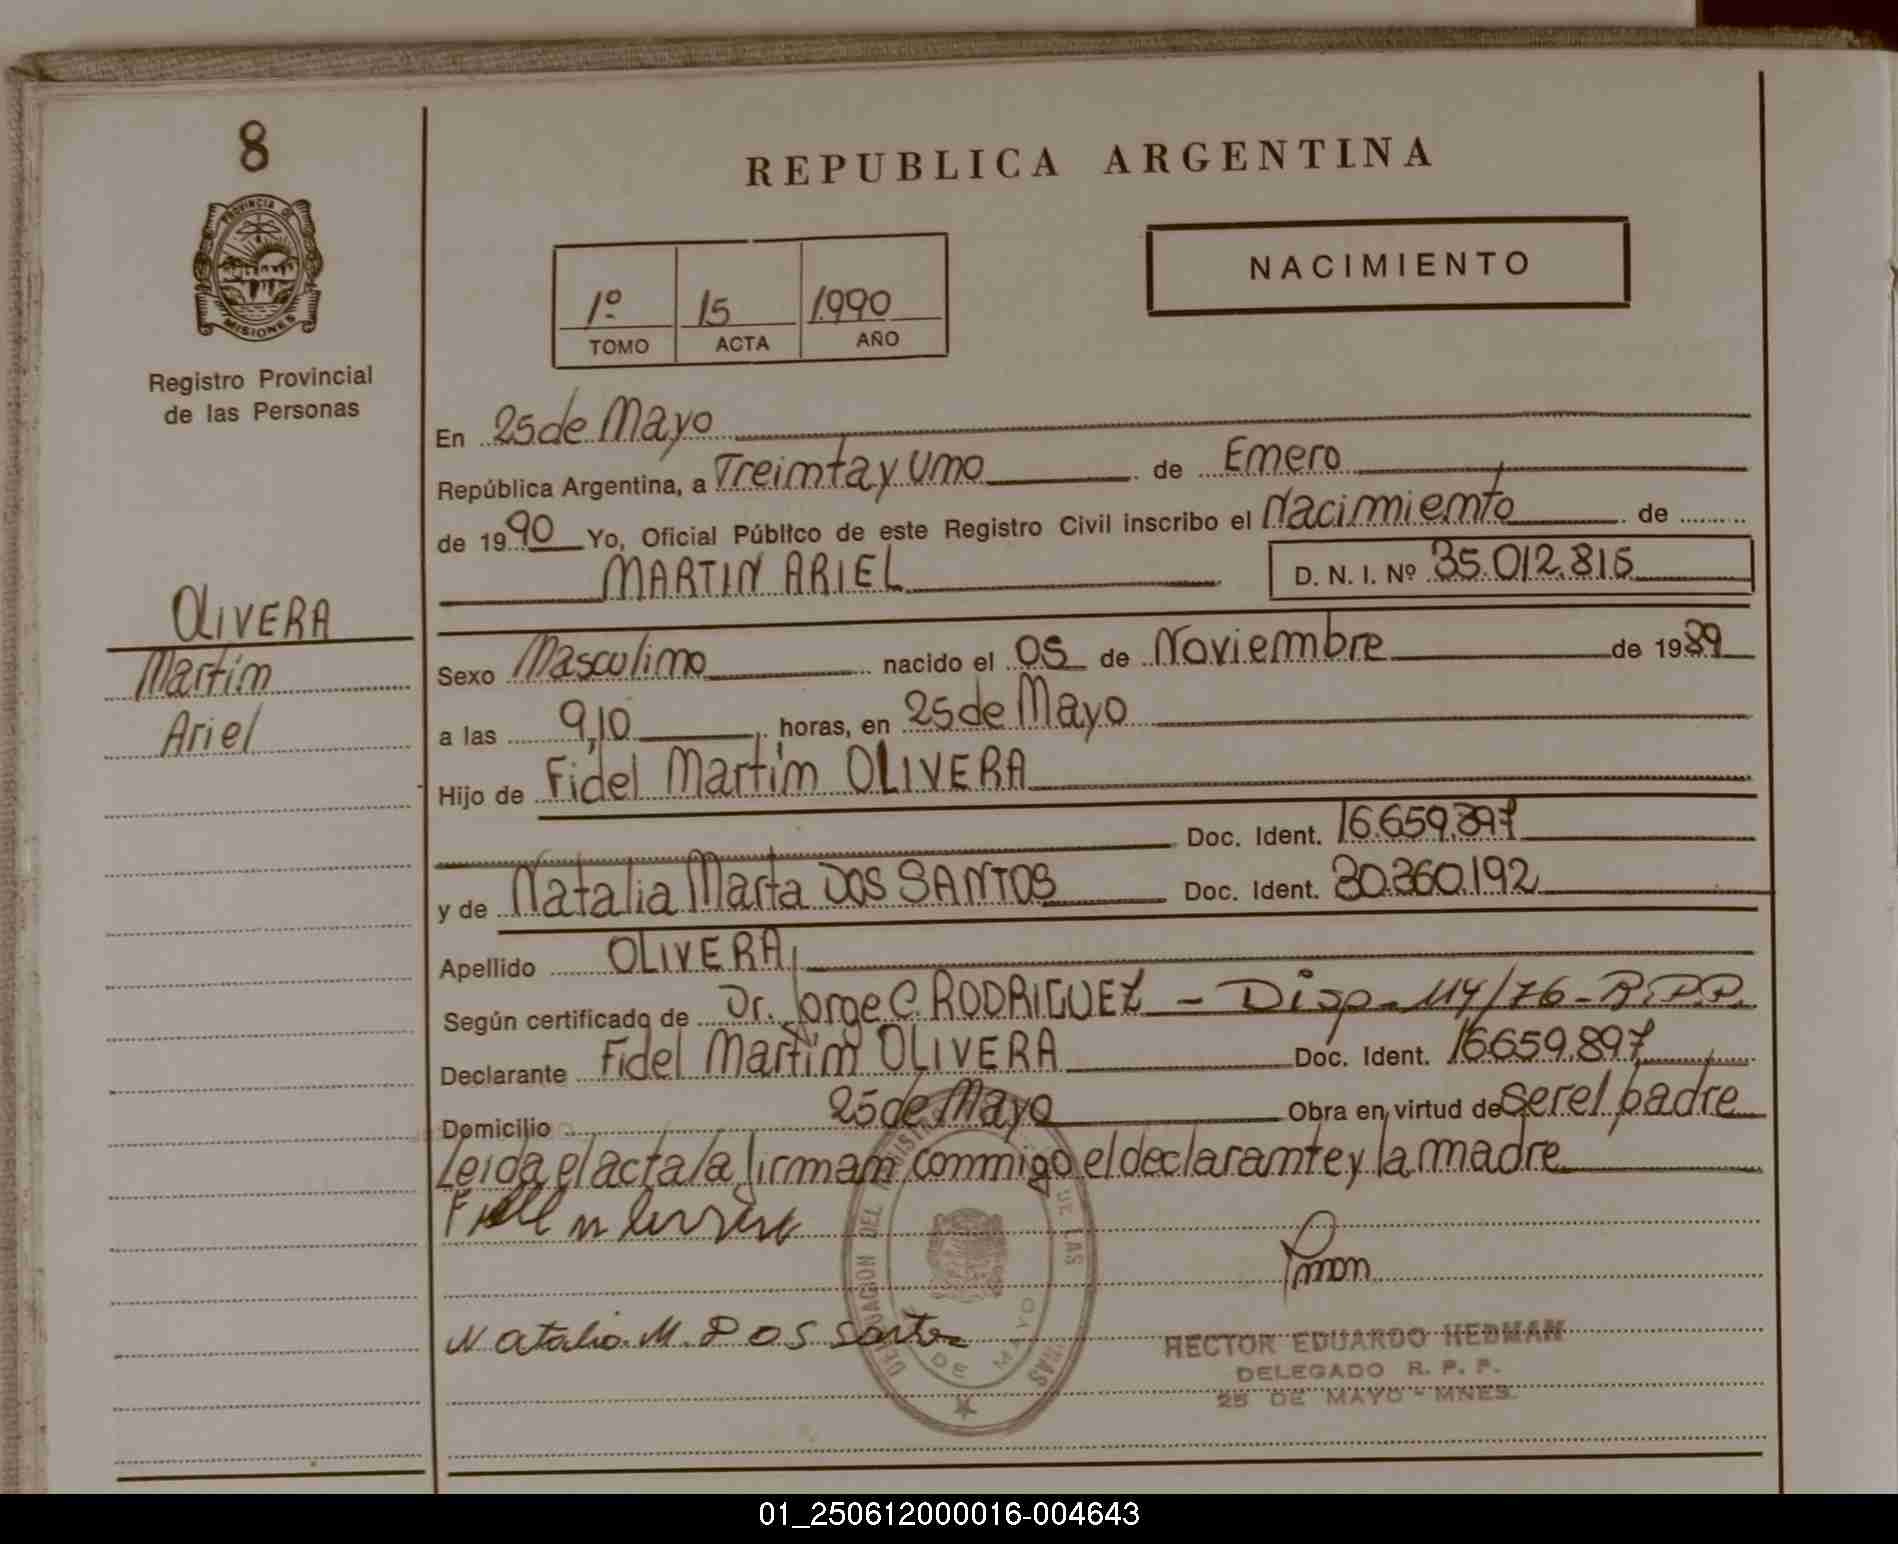 8
PROVINCIA DE
MISIONES
Registro Provincial
de las Personas
OLIVERA
Martin
Ariel
REPUBLICA ARGENTINA
NACIMIENTO
1º 15 1.990
TOMO ACTA AÑO
En 25 de Mayo
República Argentina, a Treinta y Uno de Enero
de 1990 Yo, Oficial Público de este Registro Civil inscribo el Nacimiento de
MARTIN ARIEL D. N. I. Nº 35.012.815
Sexo Masculino nacido el 05 de Noviembre de 1989
a las 9,10 horas, en 25 de Mayo
Hijo de Fidel Martin OLIVERA
Doc. Ident. 16.659.897
y de Natalia Marta DOS SANTOS Doc. Ident. 30.360.192
Apellido OLIVERA
Según certificado de Dr. Jorge C. RODRIGUEZ - Disp. 114/76 - R.P.P.
Declarante Fidel Martin OLIVERA Doc. Ident. 16.659.897
Domicilio 25 de Mayo Obra en virtud de ser el padre
Leida el acta la firman conmigo el declarante y la madre
Natalia M. DOS Santos
DE LAS
DE MAYO
HECTOR EDUARDO HEDMAN
DELEGADO R. P. P.
25 DE MAYO - MNES.
01_250612000016-004643